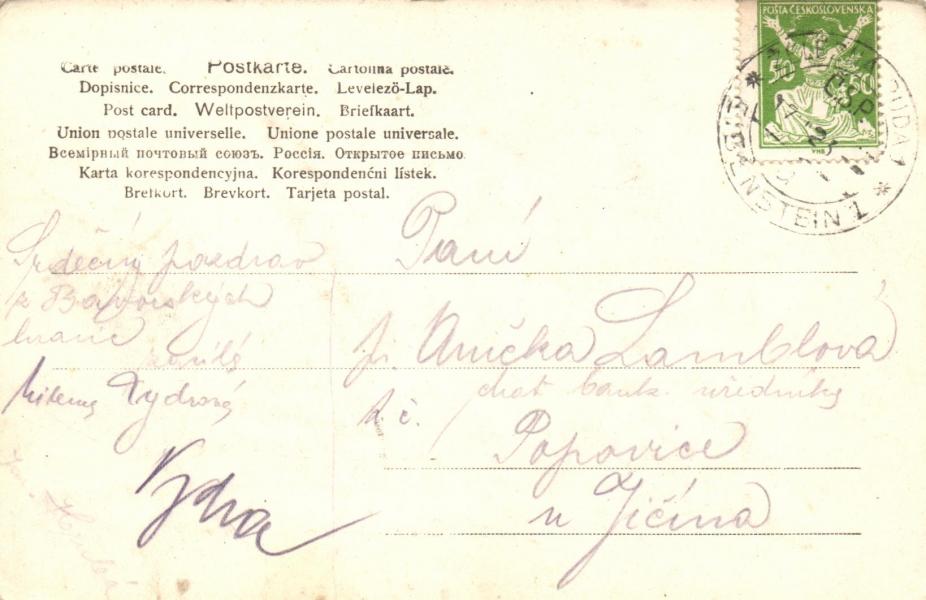 Carte postale. Postkarte. Cartolina postale.
Dopisnice. Correspondenzkarte. Levelező-Lap.
Post card. Weltpostverein. Briefkaart.
Union postale universelle. Unione postale universale.
Всемірный почтовый союзъ. Россія. Открытое письмо.
Karta korespondencyjna. Korespondenčni lístek.
Brefkort. Brevkort. Tarjeta postal.
POŠTA ČESKOSLOVENSKÁ
50 50
RUDA
EISENSTEIN 1
ČSP
Srdečný pozdrav
z Bavorských
hranic
Milena
Vydra
Paní
Anička Lamblová
choť bank. úředníka
č.
Popovice
u Jičína